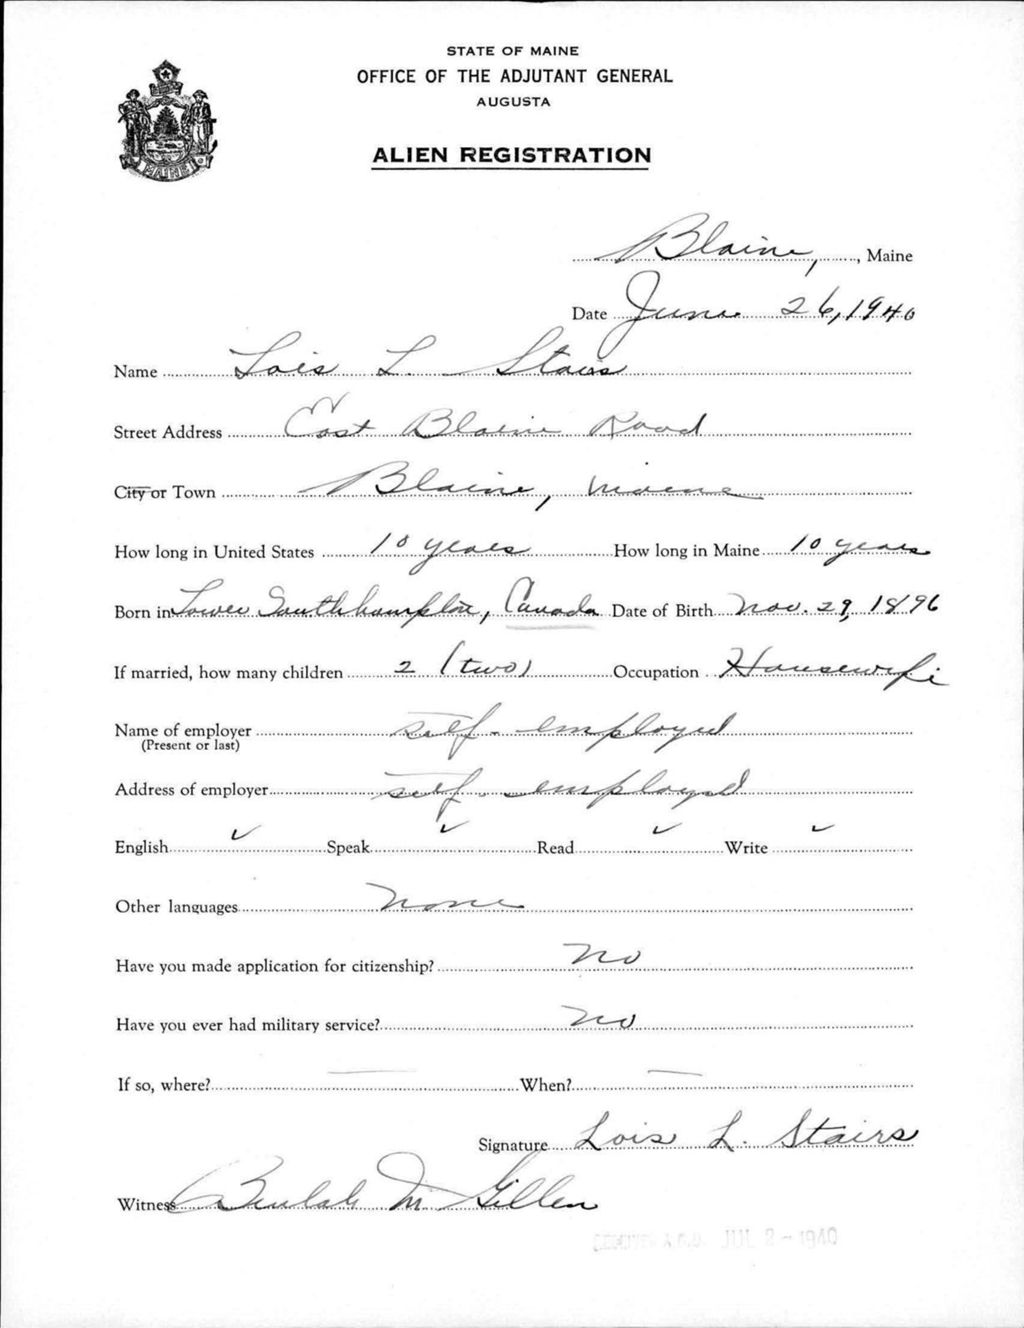 STATE OF MAINE
OFFICE OF THE ADJUTANT GENERAL
AUGUSTA
ALIEN REGISTRATION
MAINE
Blaine, , Maine
Date June 26, 1940
Name Lois L. Stairs
Street Address East Blaine Road
City or Town Blaine, Maine
How long in United States 10 years How long in Maine 10 years
Born in Lower Southhampton, Canada Date of Birth Nov. 29, 1896
If married, how many children 2 (two) Occupation Housewife
Name of employer self-employed
(Present or last)
Address of employer self-employed
English ✓ Speak ✓ Read ✓ Write ✓
Other languages None
Have you made application for citizenship? No
Have you ever had military service? No
If so, where? — When? —
Signature Lois L. Stairs
Witness Beulah M Gillen
RECEIVED A.G.O. JUL 2 - 1940